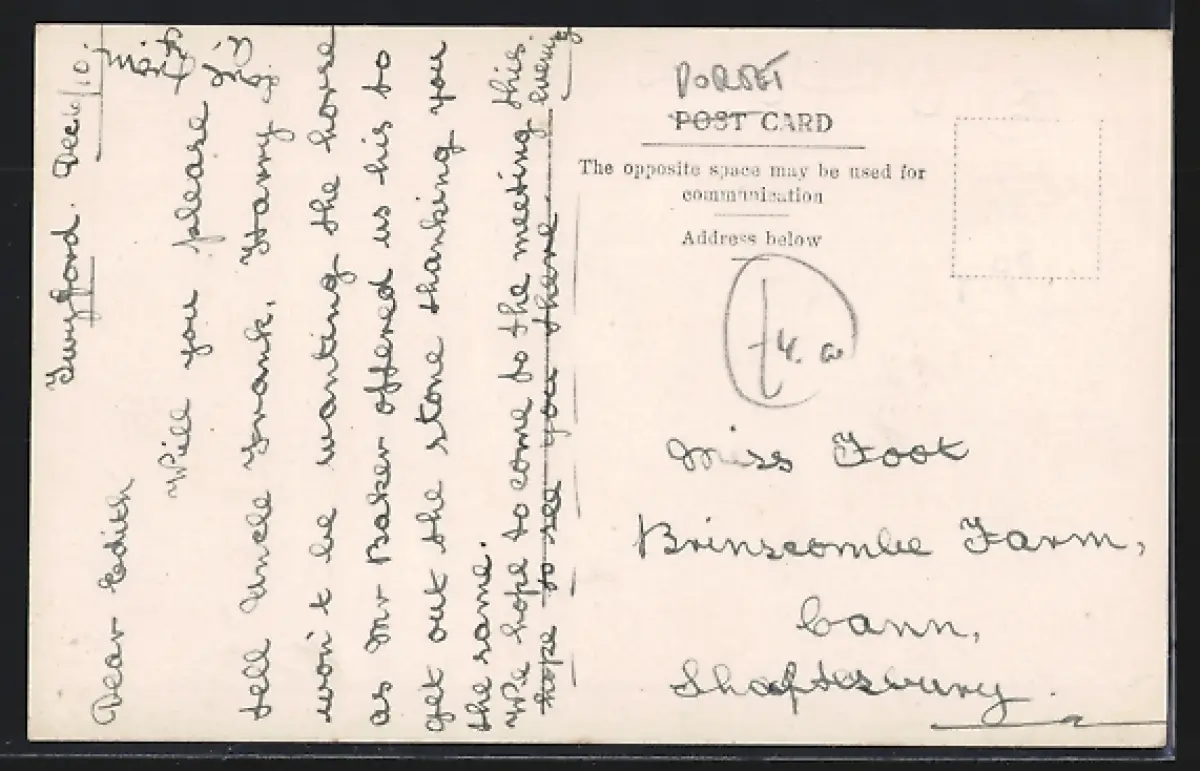 Twyford. Dec 6/10.
Dear Edith
Will you please
tell Uncle Frank, Harry
won't be wanting the horse
as Mr Baker offered us his to
get out the stone thanking you
the same.
We hope to come to the meeting this
hope to see you there evening
DORSET
POST CARD
The opposite space may be used for
communication
Address below
4.
Miss Foot
Brinscombe Farm,
Cann,
Shaftesbury.